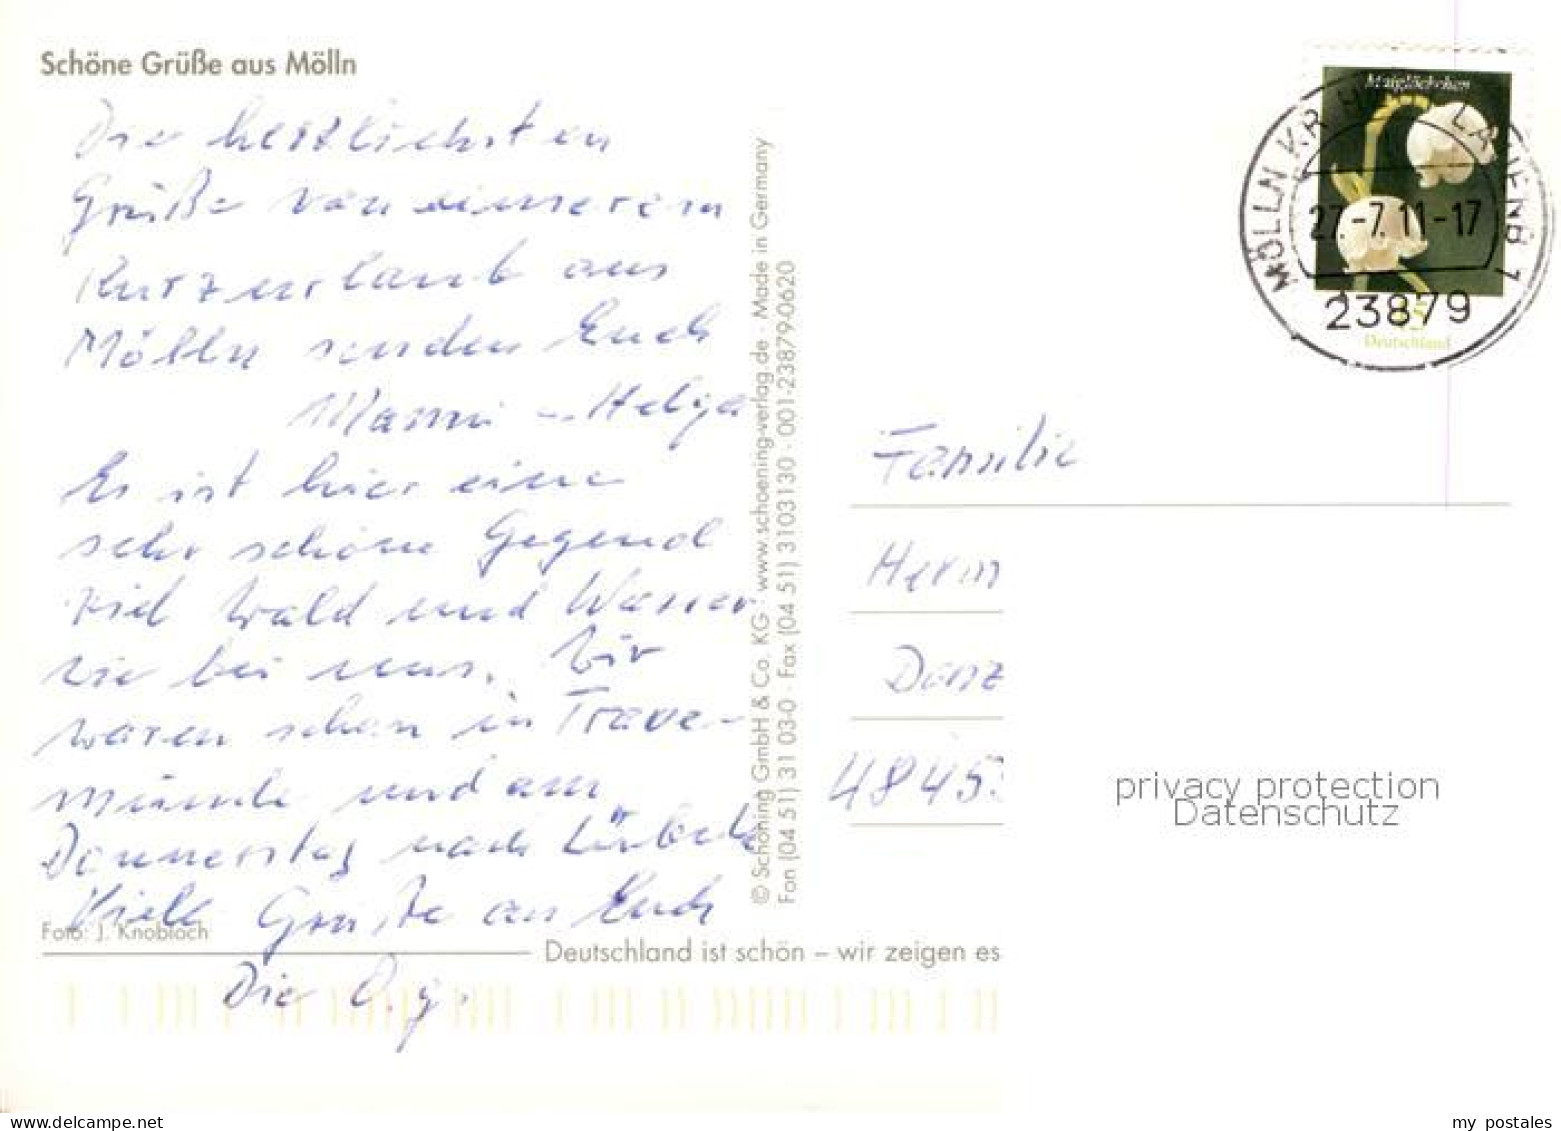 Schöne Grüße aus Mölln
Die herzlichsten
Grüße von unserem
Kurzurlaub aus
Mölln senden Euch
Manni u. Helga
Es ist hier eine
sehr schöne Gegend
viel Wald und Wasser
wie bei uns. Wir
waren schon in Trave-
münde und am
Donnerstag nach Lübeck
Viele Grüße an Euch
Die O.g.
Foto: J. Knobloch
Deutschland ist schön – wir zeigen es
© Schöning GmbH & Co. KG · www.schoening-verlag.de · Made in Germany
Fon (04 51) 31 03-0 · Fax (04 51) 3103130 · 001-23879-0620
Maiglöckchen
MÖLLN KR
27.-7.11-17
23879
Deutschland
Familie
Herm
Danz
4845
privacy protection
Datenschutz
my postales